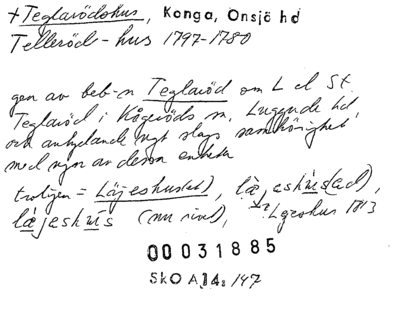 +Teglarödshus, Konga, Onsjö hd
Telleröd-hus 1797-1780
gen av beb-n Teglaröd om L el St.
Teglaröd i Kågeröds sn, Luggude hd,
och antydande ngt slags samhörighet
med ngn av dessa enheter
troligen = Läjeshus(et), lä̀jeshus(ed),
lä̀jeshus (nu rivet), ?Lgeshus 1813
00031885
SkO A14: 147